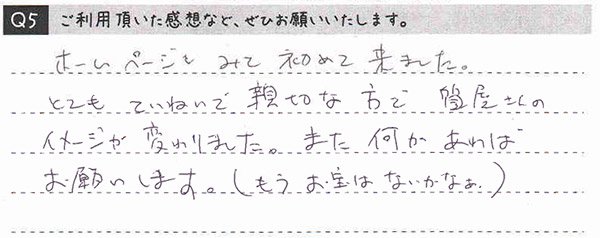 Q5 ご利用頂いた感想など、ぜひお願いいたします。
ホームページを みて 初めて 来ました。
とても ていねいで 親切な 方で 質屋さんの
イメージが 変わりました。また 何か あれば
お願いします。(もう お宝は ないかなぁ.)